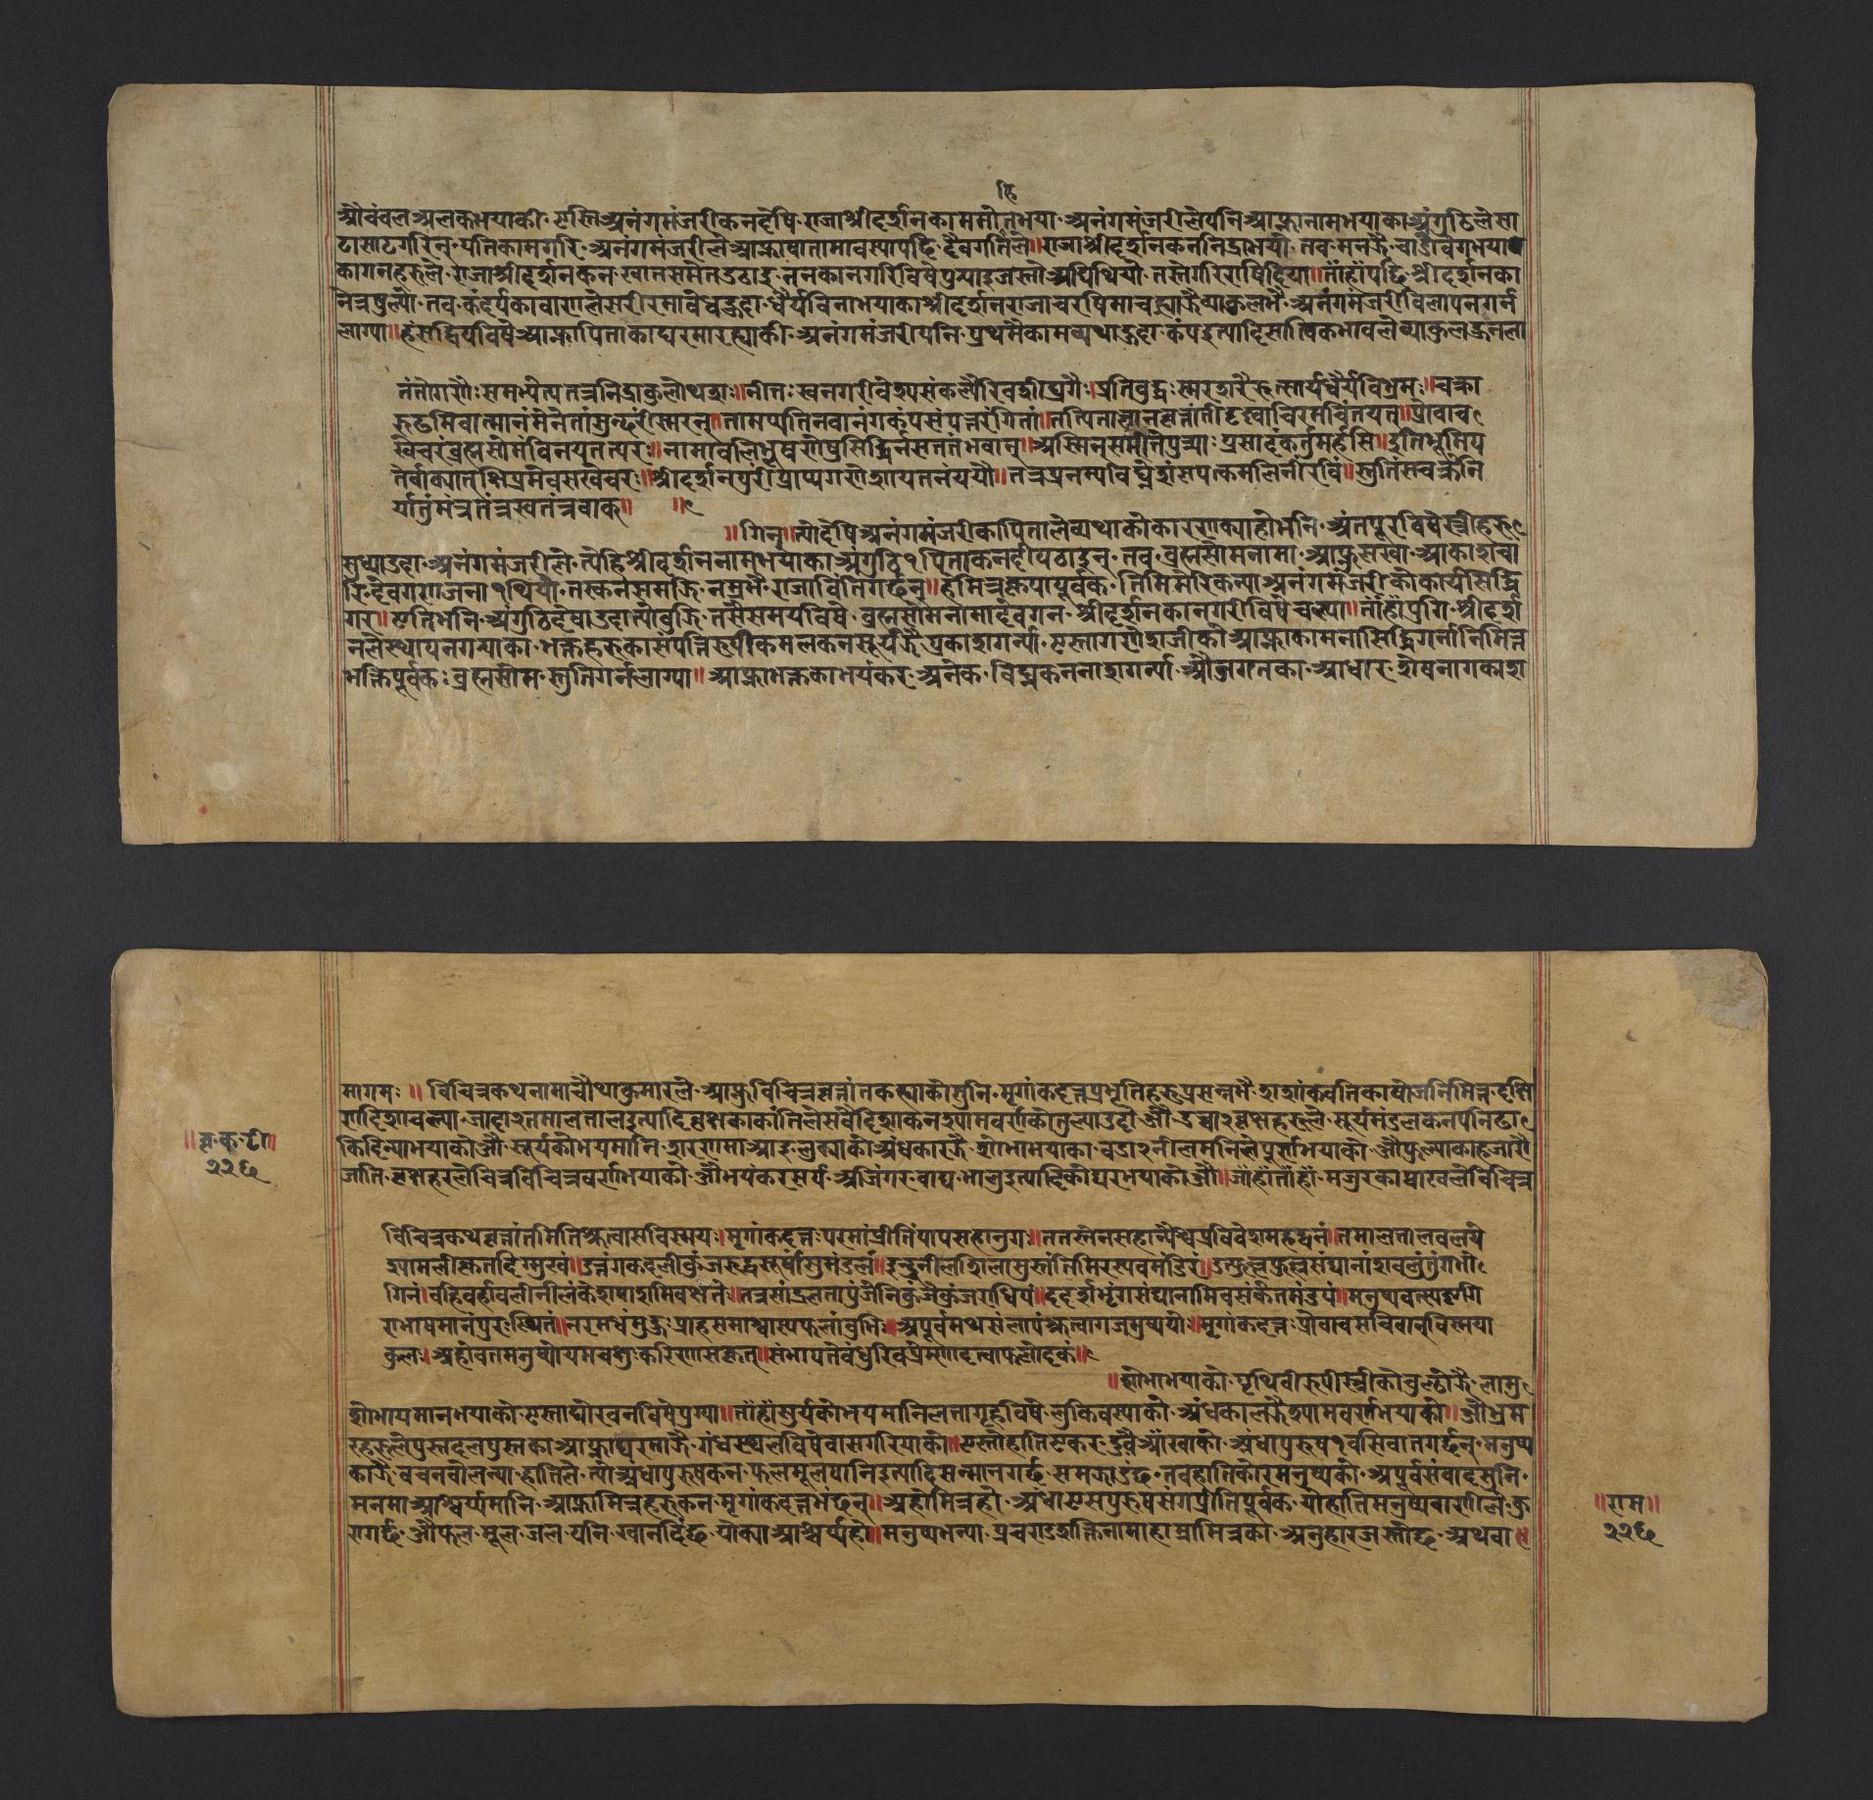 हि
औ चंचल अलक भयाकी यस्ति अनंगमंजरीकन देषि राजा श्रीदर्शनका ममोत भया अनंगमंजरीले पनि आफ्ना नाम भयाका अंगुठिले सा
टासाट गरिन् पति कामगरि अनंगमंजरीले आफ्ना षातामा वस्यापछि दैवगतिले॥ राजा श्रीदर्शनकन निद्रा भयो तव मनझै चाडो वेग भयाका
का गनहरूले राजा श्रीदर्शनकन खातसमेत उठाइ ननका नगरिविषे पुर्‍याइ जस्तो अघि थियो तस्तै गरि राषिदिया॥ ताँहाँपछि श्रीदर्शनका
नेत्र षुल्यो तव कंदर्पका वाणले सरीरमा वेध हुदा धैर्य विना भयाका श्रीदर्शन राजा चरषिमा चह्याझै व्याकुल भै अनंगमंजरी विलापन गर्न
लाग्या॥ हंसद्विपविषे आफ्ना पिताका घरमा रह्याकी अनंगमंजरी पनि प्रथमै कामव्यथा हुदा कंप इत्यादि सात्विक भावले व्याकुल हुन ला
तंतोगणैः समभ्येत्य तत्र निद्राकुलोथ शः॥ नीतः स्वनगरी वेश्म संकल्पैरिव शीघ्रगैः॥ प्रतिबुद्धः स्मरशरैरुत्सार्य धैर्यविभ्रमः॥ चक्रा
रूढमिवात्मानं मेने तां सुन्दरीं स्मरन्॥ साप्यतिनवानंगकंपसंपन्नरंगिता॥ तत्पिता ज्ञातवृत्तांतो दृष्ट्वा चिरमचिंतयत्॥ प्रोवाच
खेचरं ब्रह्मसोमं विनयतत्परः॥ नामावलिभूषणेषु सिद्धिर्न सततं भवान्॥ अस्मिन् समीते पुत्र्याः प्रसादं कर्तुमर्हसि॥ इति भूमिप
तेर्वाक्यात् क्षिप्रमेव स खेचरः॥ श्रीदर्शनपुरीं प्राप्य गणेशायतनं ययौ॥ तत्र प्रनम्य विघ्नेशं सपत्कमलिनीरविं॥ स्तुतिं स चक्रे नि
र्यातुं मंत्रतंत्रस्वतंत्रवाक्॥ ॥
॥गिन्॥ त्यो देषि अनंगमंजरीका पिताले व्यथाको कारण क्या हो भनि अंतपूरविषे स्त्रीहरू
सुध्याउदा अनंगमंजरीले त्यैहि श्रीदर्शन नाम भयाका अंगुठि १ पिताकन दीपठाइन् तव ब्रह्मसोम नामा आफ्नु सखा आकाशचा
रि देवगण जना १ थियो तस्कन समझि नम्र भै राजा विंति गर्छन्॥ हे मित्र कृपापूर्वक तिमि मेरि कन्या अनंगमंजरीको कार्य सिद्धि
गर॥ यति भनि अंगुठि देषाउदा त्यो वुझि तसै समयविषे ब्रह्मसोम नामा देवगन श्रीदर्शनका नगरीविषे चल्या॥ ताँहाँ पुगि श्रीदर्श
नले स्थापन गर्‍याका भक्तहरूका संपत्तिरूपी कमलकन सूर्यझै प्रकाश गर्न्या यस्ता गणेशजीको आफ्ना कामना सिद्धि गर्नानिमित्त
भक्तिपूर्वकः ब्रह्मसोम स्तुति गर्न लाग्या॥ आफ्ना भक्तका भयंकर अनेक विघ्नकन नाश गर्न्या औ जगतका आधार शेषनागका शा
मागमः॥ विचित्रकथ नामा चौथा कुमारले आफ्नु विचित्र वृत्तांत कह्याको सुनि मृगांकदत्त प्रभृतिहरू प्रसन्न भै शशांकवतिका षोजनिमित्त दक्षि
ण दिशा चल्या जाहा २ तमाल ताल इत्यादि वृक्षका कांतिले सवै दिशाकन श्यामवर्णको तुल्याउदो औ उचा २ वृक्षहरूले सूर्यमंडलकन पनि ढा
॥बृ.क.टी॥ किदिन्या भयाको औ सूर्यको भय मानि शरणमा आइ लुक्याको अंधकारझै शोभा भयाका वडा २ नीलमनिले पुर्ण भयाको औ फुल्याका हजारौ
२२६ जाति वृक्षहरूले चित्रविचित्र वर्ण भयाको औ भयंकर सर्प अजिंगर वाघ भालु इत्यादिको घर भयाको औ॥ जाँहाँ ताँहाँ मजुरका प्वाखले विचित्र
विचित्रकथवृत्तांतमिति श्रुत्वा सविस्मयः॥ मृगांकदत्तः परमां प्रीतिं पाप सहानुगः॥ ततस्तेन सहान्यैश्च प्रविवेश महद्वनं॥ तमालतालवलय
श्यामलीकृतदिग्मुखं॥ उत्तुंगकदलीकुंजरुद्धसूर्यांशुमंडलं॥ इन्द्रनीलशिलासुप्तं तिमिरस्येव मंदिरं॥ उत्फुल्लफुल्लसंघानां शबलं तुंगभो
गिनं॥ बहिबर्हावलीनीलं केशपाशमिव क्षितेः॥ तत्र सांद्रलतापुंजे निकुंजे कुंजराधिपं॥ ददर्श भृंगसंघानामिव संकेतमंडपं॥ मनुष्यवत्स्पष्टगि
रा भाषमानं पुरःस्थितं॥ नरमंधं मुहुः प्राह समाश्वास्य फलांबुभिः॥ अपूर्वमथ संलापं श्रुत्वा गजमुष्ययोः॥ मृगांकदत्तः प्रोवाच सचिवान् विस्मया
कुलः॥ अहो वत मनुष्योयमचक्षुः करिणा सकृत्॥ संभाष्यते बंधुरिव प्रेम्णा दत्वा फलोदकं॥
॥शोभा भयाको पृथिवीरूपी स्त्रीको चुल्ठोझै लामु
शोभायमान भयाको यस्ता घोर वनविषे पुग्या॥ ताँहाँ सुर्यको भय मानि लतागृहविषे लुकि वस्याको अंधकालझै श्यामवर्त भयाको॥ औ भ्रम
रहरूले पुस्तदलपुस्तका आफ्ना घरमाझै गंधस्थलविषे वास गरियाको॥ यस्तो हाति एकर दुवै आँखाको अंधा पुरुष १ वसि वात गर्छन् मनुष्य
काझै वचन वोलन्या हातिले त्यो अंधा पुरुषकन फलमूल पानि इत्यादि सन्मान गर्छ समझाउँछ तव हाति कोर मनुष्यको अपूर्व संवाद सुनि
मनमा आश्चिर्य मानि आफ्ना मित्रहरूकन मृगांकदत्त भंछन्॥ अहो मित्र हो अंधा यस पुरुषसंग प्रीतिपूर्वक यो हाति मनुष्यवाणीले कु ॥राम॥
रा गर्छ औ फल मूल जल पनि खान दिंछ यो क्या आश्चिर्य हो॥ मनुष्य भन्या प्रचण्डशक्ति नामा हाम्रा मित्रका अनुहार जस्तो छ अथवा॥ २२६